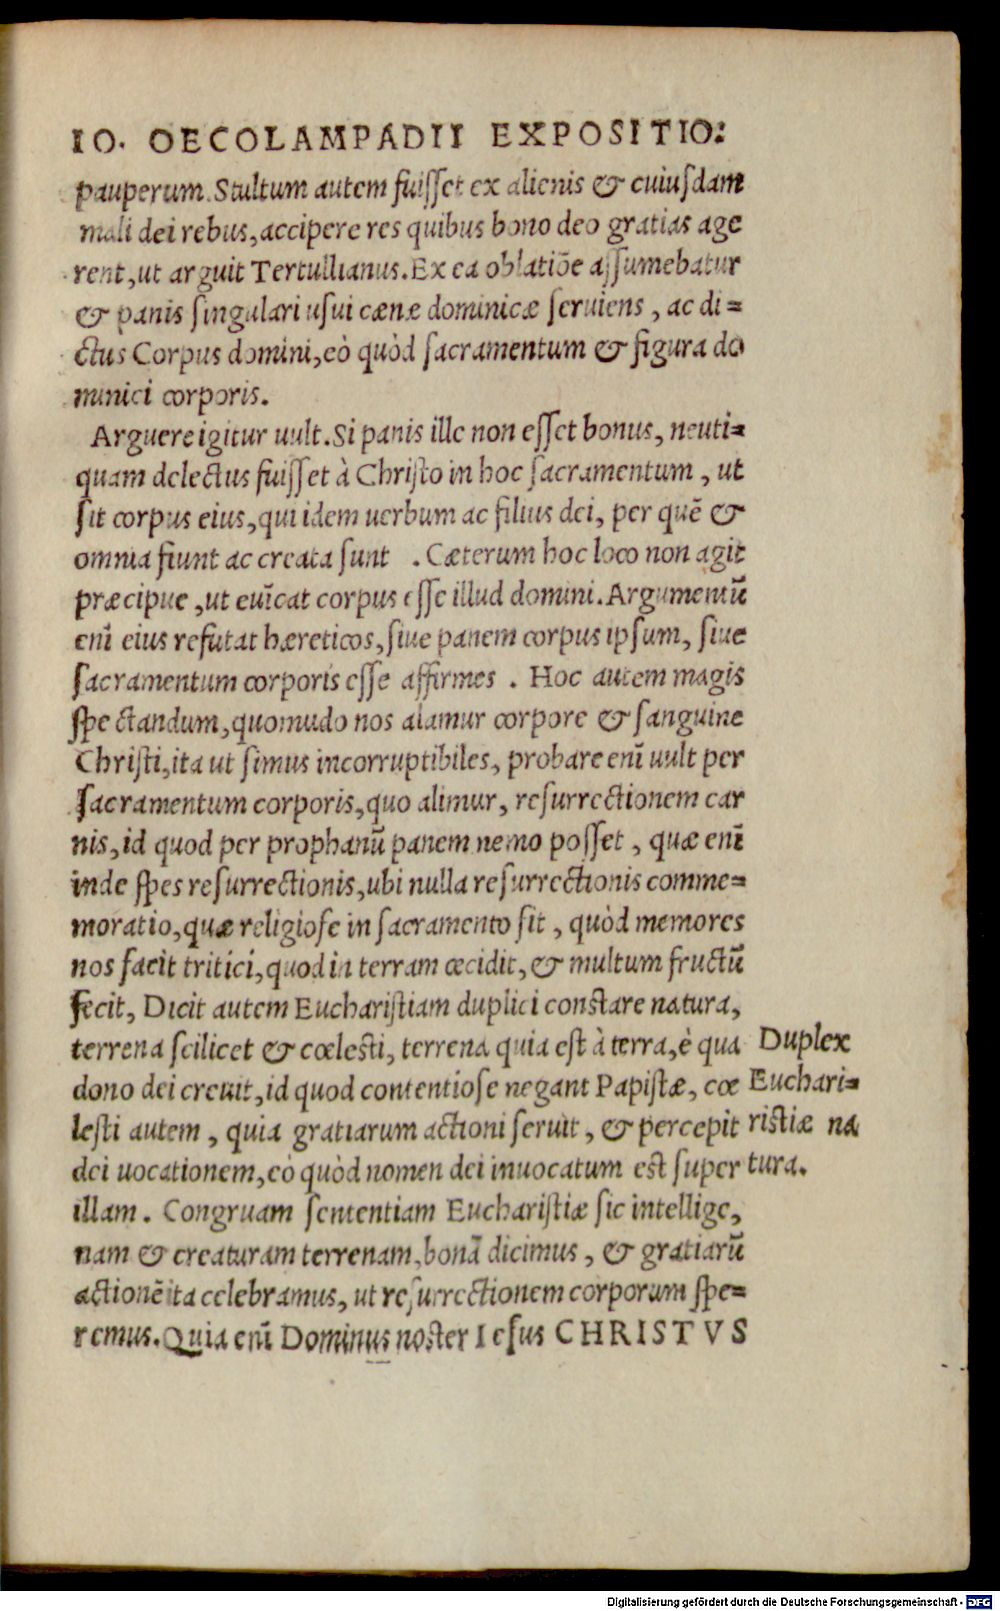 IO. OECOLAMPADII EXPOSITIO:
pauperum. Stultum autem fuiſſet ex alienis & cuiuſdam
mali dei rebus, accipere res quibus bono deo gratias age
rent, ut arguit Tertullianus. Ex ea oblatiōe aſſumebatur
& panis ſingulari uſui cænæ dominicæ ſeruiens, ac di=
ctus Corpus domini, eò quòd ſacramentum & figura do
minici corporis.
Arguere igitur uult. Si panis ille non eſſet bonus, neuti=
quam delectus fuiſſet à Chriſto in hoc ſacramentum, ut
ſit corpus eius, qui idem uerbum ac filius dei, per quē &
omnia fiunt ac creata ſunt . Cæterum hoc loco non agit
præcipue, ut euīcat corpus eſſe illud domini. Argumentū
enī eius refutat hæreticos, ſiue panem corpus ipſum, ſiue
ſacramentum corporis eſſe affirmes . Hoc autem magis
ſpectandum, quomudo nos alamur corpore & ſanguine
Chriſti, ita ut ſimus incorruptibiles, probare enī uult per
ſacramentum corporis, quo alimur, reſurrectionem car
nis, id quod per prophanū panem nemo poſſet, quæ enī
inde ſpes reſurrectionis, ubi nulla reſurrectionis comme=
moratio, quæ religioſe in ſacramento fit, quòd memores
nos facit tritici, quod in terram cecidit, & multum fructū
fecit, Dicit autem Euchariſtiam duplici conſtare natura,
terrena ſcilicet & cœleſti, terrena quia eſt à terra, è qua
dono dei creuit, id quod contentioſe negant Papiſtæ, cœ
leſti autem, quia gratiarum actioni ſeruit, & percepit
dei uocationem, eò quòd nomen dei inuocatum eſt ſuper
illam. Congruam ſententiam Euchariſtiæ ſic intellige,
nam & creaturam terrenam, bonā dicimus, & gratiarū
actionē ita celebramus, ut reſurrectionem corporum ſpe=
remus. Quia enī Dominus noſter Ieſus CHRISTVS
Duplex
Euchari=
riſtiæ na
tura.
Digitalisierung gefördert durch die Deutsche Forschungsgemeinschaft - DFG